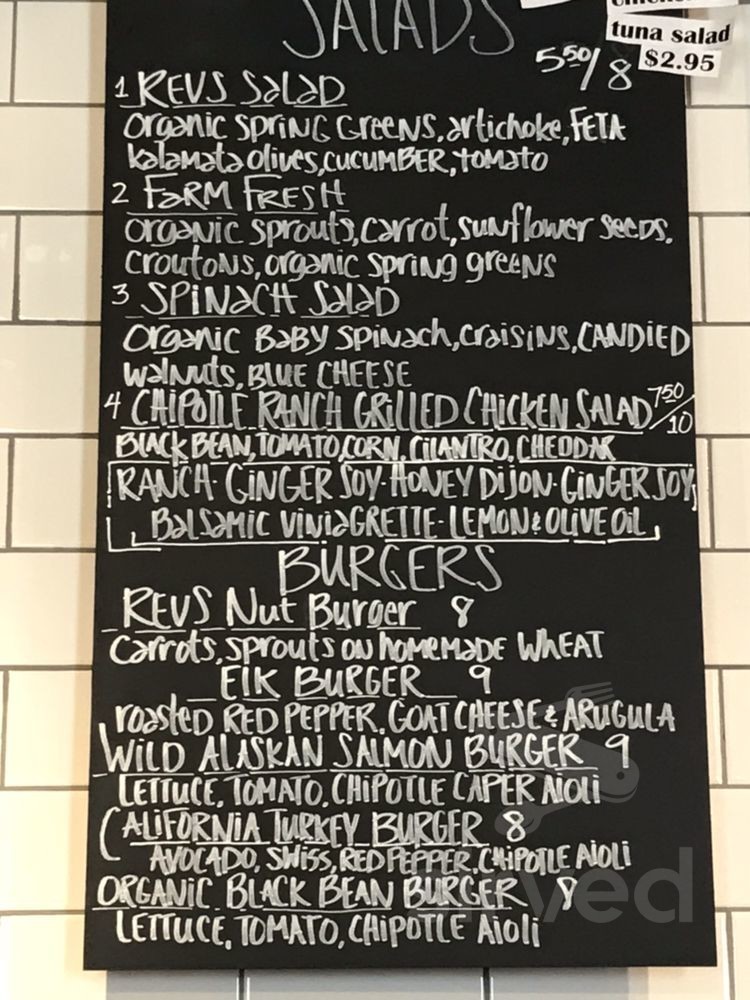 SALADS
tuna salad
$2.95
5.50/8
1 REVS SALAD
Organic Spring Greens, artichoke, FETA
kalamata olives, CUCUMBER, tomato
2 FARM FRESH
organic sprouts, carrot, sunflower seeds,
croutons, organic spring greens
3 SPINACH SALAD
Organic Baby Spinach, craisins, CANDIED
walnuts, BLUE CHEESE
4 CHIPOTLE RANCH GRILLED CHICKEN SALAD 7.50/10
BLACK BEAN, TOMATO, CORN, CILANTRO, CHEDDAR
RANCH · GINGER SOY · HONEY DIJON · GINGER SOY
BALSAMIC VINIAGRETTE · LEMON & OLIVE OIL
BURGERS
REVS Nut Burger 8
Carrots, sprouts on homemade WHEAT
Elk BURGER 9
roasted RED PEPPER, GOAT CHEESE & ARUGULA
WILD ALASKAN SALMON BURGER 9
LETTUCE, TOMATO, CHIPOTLE CAPER AIOLI
CALIFORNIA TURKEY BURGER 8
AVOCADO, SWISS, RED PEPPER, CHIPOTLE AIOLI
ORGANIC BLACK BEAN BURGER 8
LETTUCE, TOMATO, CHIPOTLE AIOLI